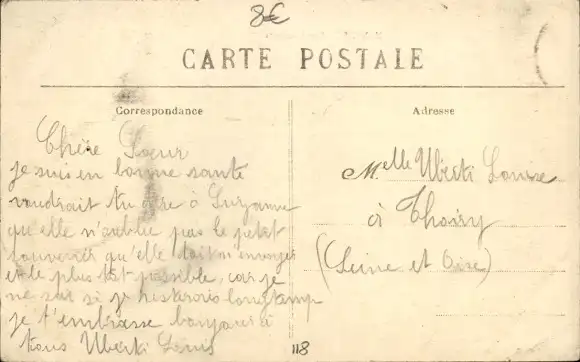 8€
CARTE POSTALE
Correspondance
Adresse
Chère Sœur
je suis en bonne santé
voudrait tu dire à Suzanne
qu'elle n'oublie pas le petit
souvenir qu'elle doit m'envoyer
et le plus tot possible, car je
ne sai si je resterois longtemp
je t'embrasse bonjour à
tous Uberti Louis
Melle Uberti Louise
à Thoiry
(Seine et Oise)
118